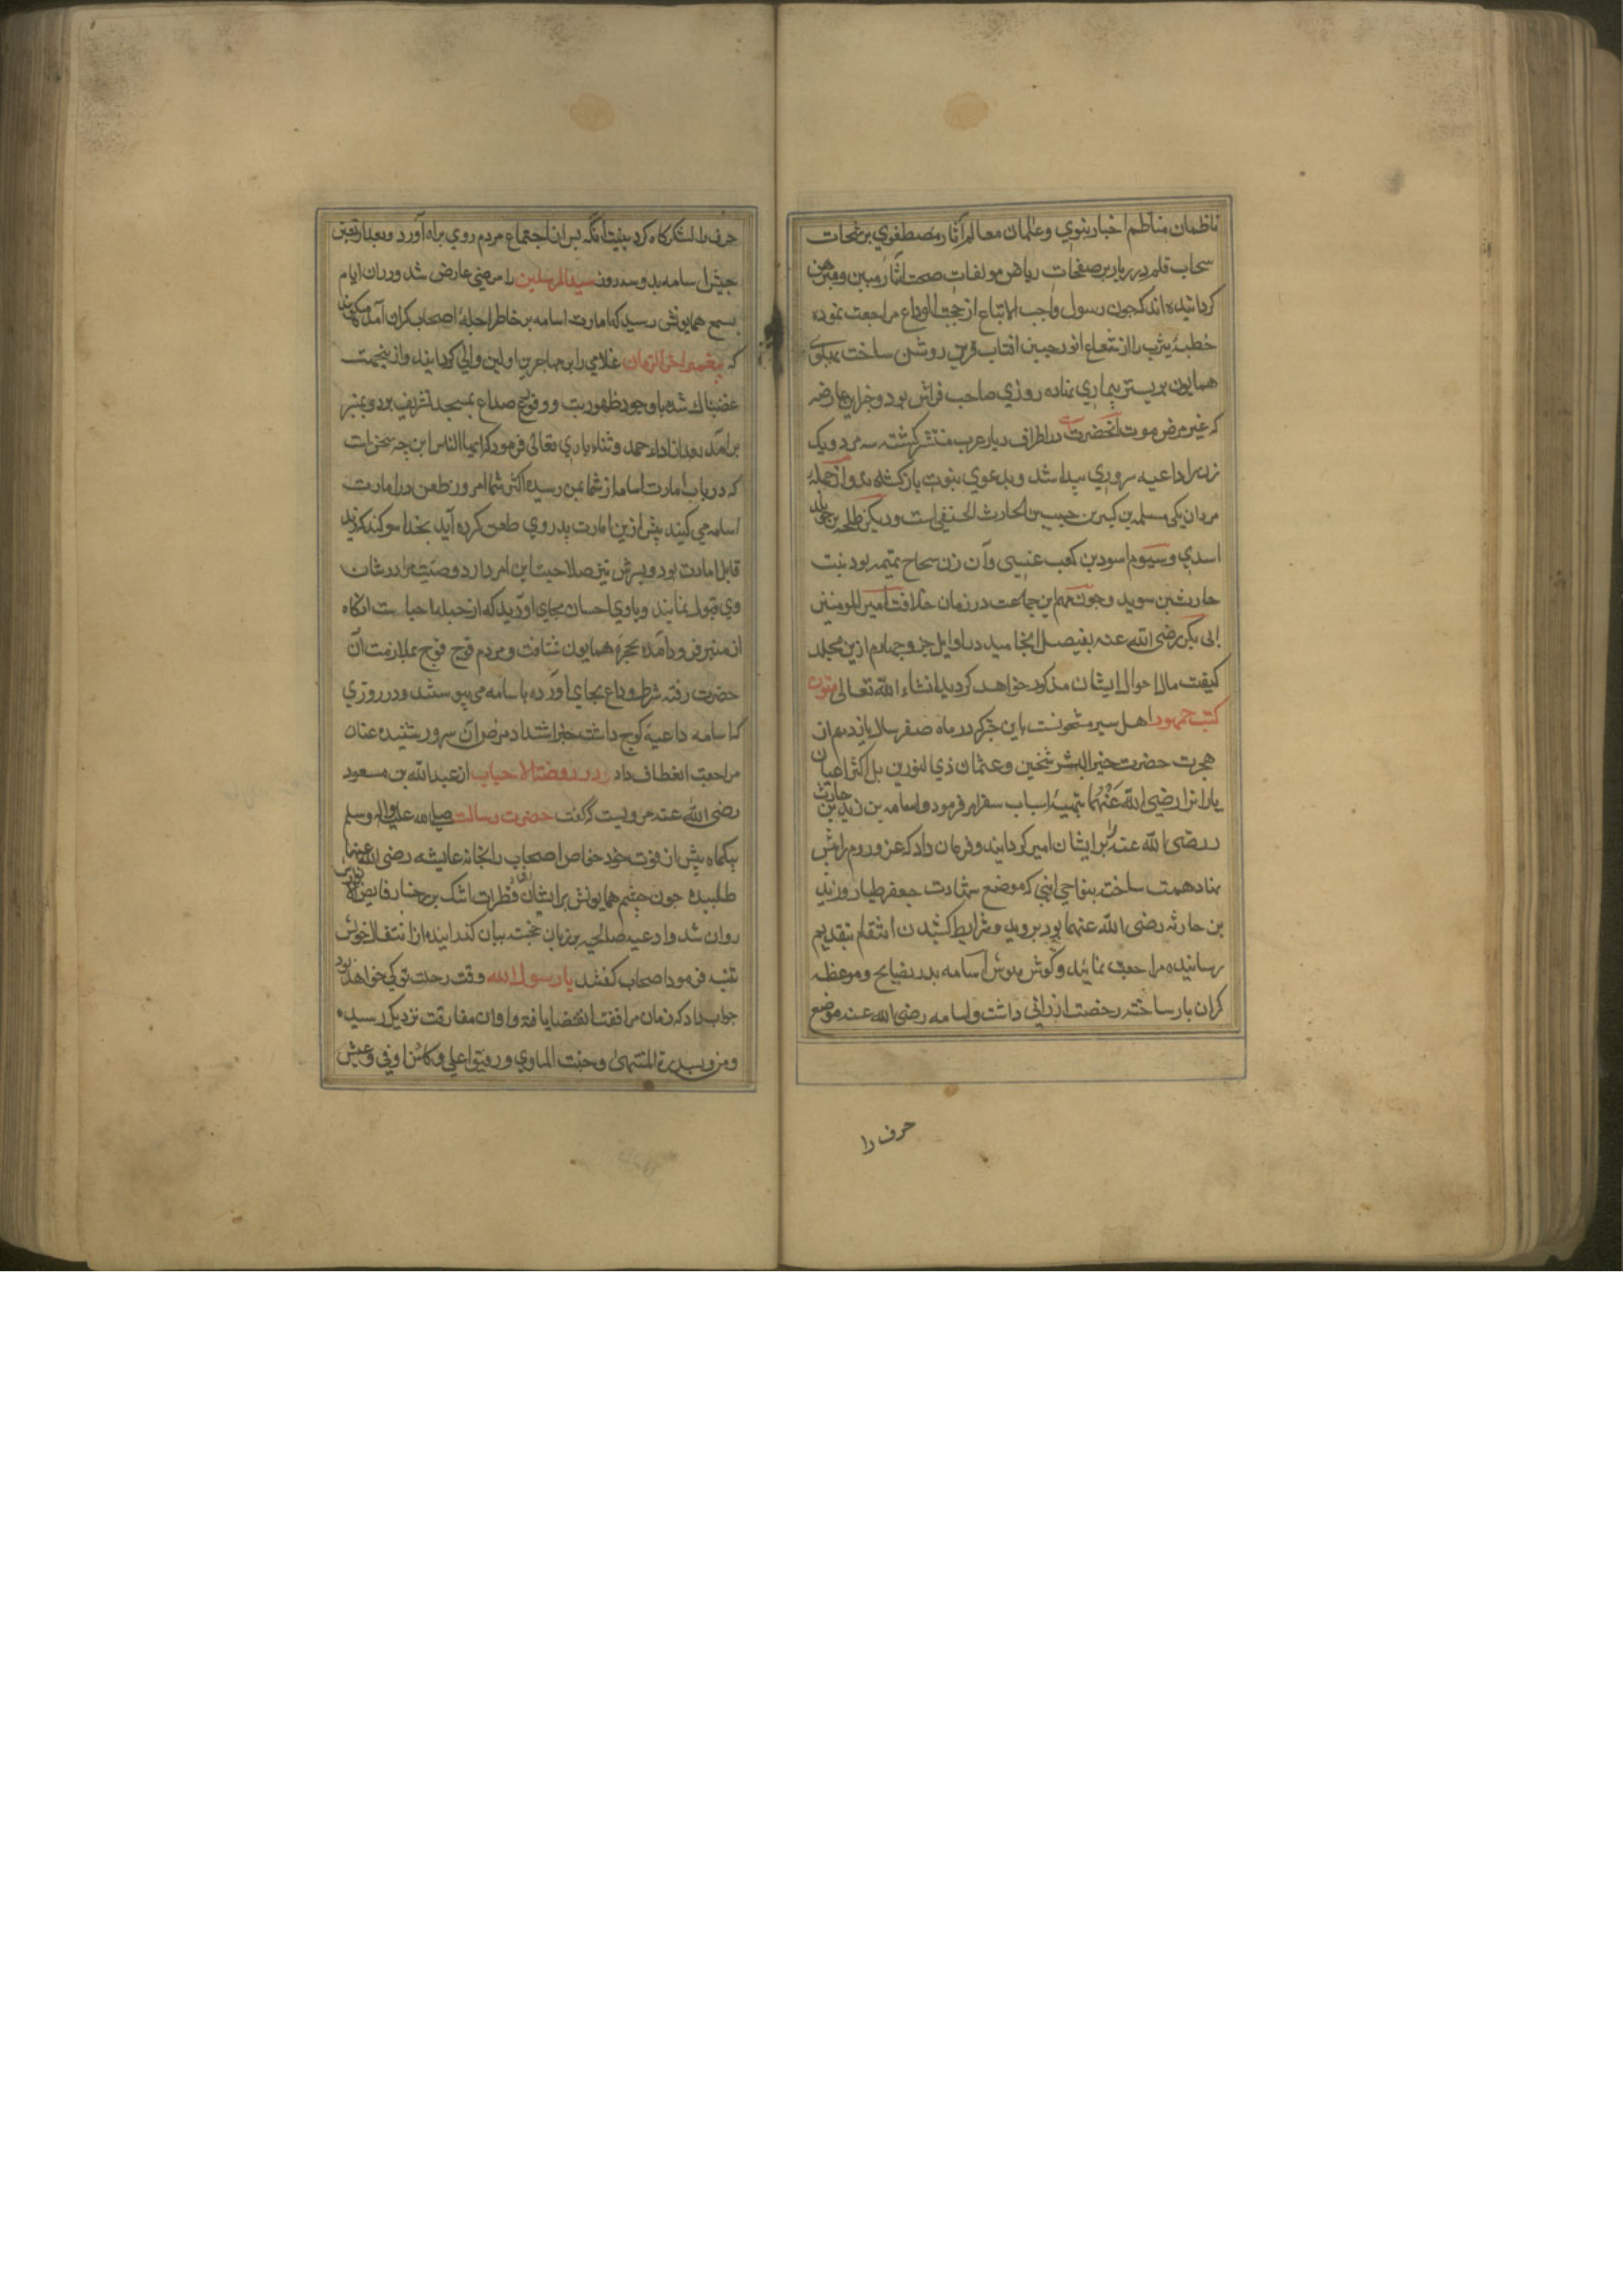 ناظمان مناظم اخبار نبوي وعالمان معالم آثار مصطفوي برشحات
سحاب قلم درربار بر صفحات رياض مولفات صحت آثار مبين ومبرهن
كردانيده اند كه جون رسول واجب الاتباع از حجة الوداع مراجعت نموده
خطبه يثرب را از شعاع انور جبين افتاب قرين روشن ساخت
همايون بر بستر بيماري نهاده روزي صاحب فراش بود وخبر اين عارضه
كه غير مرض موت آنحضرت در اطراف ديار عرب منتشر كشته سه مرد ويك
زن را داعيه سروري پيدا شد وبدعوي نبوت بازكشته بدو ازجمله
مردان يكي مسلمه بن كبير بن حبيب بن الحارث الحنفي است وديكر طلحه بن خويلد
اسدي وسيوم اسود بن كعب عنسي وآن زن سجاح تميمه بود بنت
حارث بن سويد وجون مهم اين جماعت در زمان خلافت امير المومنين
ابي بكر رضي الله عنه بفيصل انجاميد در اوايل جزو جهارم ازين مجلد
كيفت مال احوال ايشان مذكور خواهد كرديد انشاء الله تعالى متون
كتب جمهور اهل سير مشحونست باين خبر كه در ماه صفر سال يازدهم از
هجرت حضرت خير البشر شيخين وعثمان ذي النورين بل اكثر اعيان
يارانرا رضي الله عنهما بتهيه اسباب سفر امر فرمود واسامه بن زيد بن حارث
را رضي الله عنه بر ايشان امير كردانيد وفرمان داد كه عزو روم را پيش
نهاد همت ساخته بنواحي ابني كه موضع شهادت جعفر طيار وزيد
بن حارثه رضي الله عنهما بود برويد وشرايط كشيدن انتقام بتقديم
رسانيده مراجعت نمائيد وكوش هوش اسامه بدرر نصايح وموعظه
كران بار ساخته رخصت ارزاني داشت واسامه رضي الله عنه موضع
حرف را
حرف را لشكركاه كرد بنيت آنكه پس از اجتماع مردم روي براه آورد وبعد از تعين
جيش اسامه بدو سه روز سيد المرسلين را مرضي عارض شد ودران ايام
بسمع همايونش رسيد كه امارت اسامه بر خاطر اجله اصحاب كران آمده ميكويند
كه پيغمبر آخر الزمان غلامي را بر مهاجرين اولين والي كردانيد وازينجهت
غضبناك شده باوجود ظهور تب ووقوع صداع بمسجد تشريف برد وبمنبر
برآمد بعد از اداء حمد وثناء باري تعالى فرمود كه ايها الناس اين چه سخن است
كه در باب امارت اسامه از شما بمن رسيده اكثر شما امروز طعن در امارت
اسامه مي كنيد پيش ازين امارت پدر وي طعن كرده آيد بخدا سوكند كه زيد
قابل امارت بود وپسرش نيز صلاحيت اين امر دارد وصيت مرا در شان
وي قبول نمائيد وباوي احسان بجاي آوريد كه از جمله احبا ست انكاه
از منبر فرود آمده بحجره همايون شتافت ومردم فوج فوج بملازمت آن
حضرت رفته شرط وداع بجاي آورده باسامه مي پيوستند ودر روزي
كه اسامه داعيه كوج داشت خبر اشتداد مرض آن سرور شنيده عنان
مراجعت انعطاف داد ودر روضة الاحباب از عبد الله بن مسعود
رضي الله عنه مرويست كه كفت حضرت رسالت صلى الله عليه واله وسلم
بيكماه پيش از فوت خود خواص اصحاب را بخانه عايشه رضي الله عنها
طلبيده جون چشم همايونش بر ايشان قطرات اشك بر رخسار فايض الانوارش
روان شد وادعيه صالحه بر زبان خجسته بيان كذرانيده از انتقال خويش
تنبيه فرمود اصحاب كفتند يا رسول الله وقت رحلت تو كي خواهد بود
جواب داد كه زمان مرافقت انقضا يافته واوان مفارقت نزديك رسيده
ومن بسدرة المنتهى وجنت الماوي ورفيق اعلي وكاس اوفي وعيش